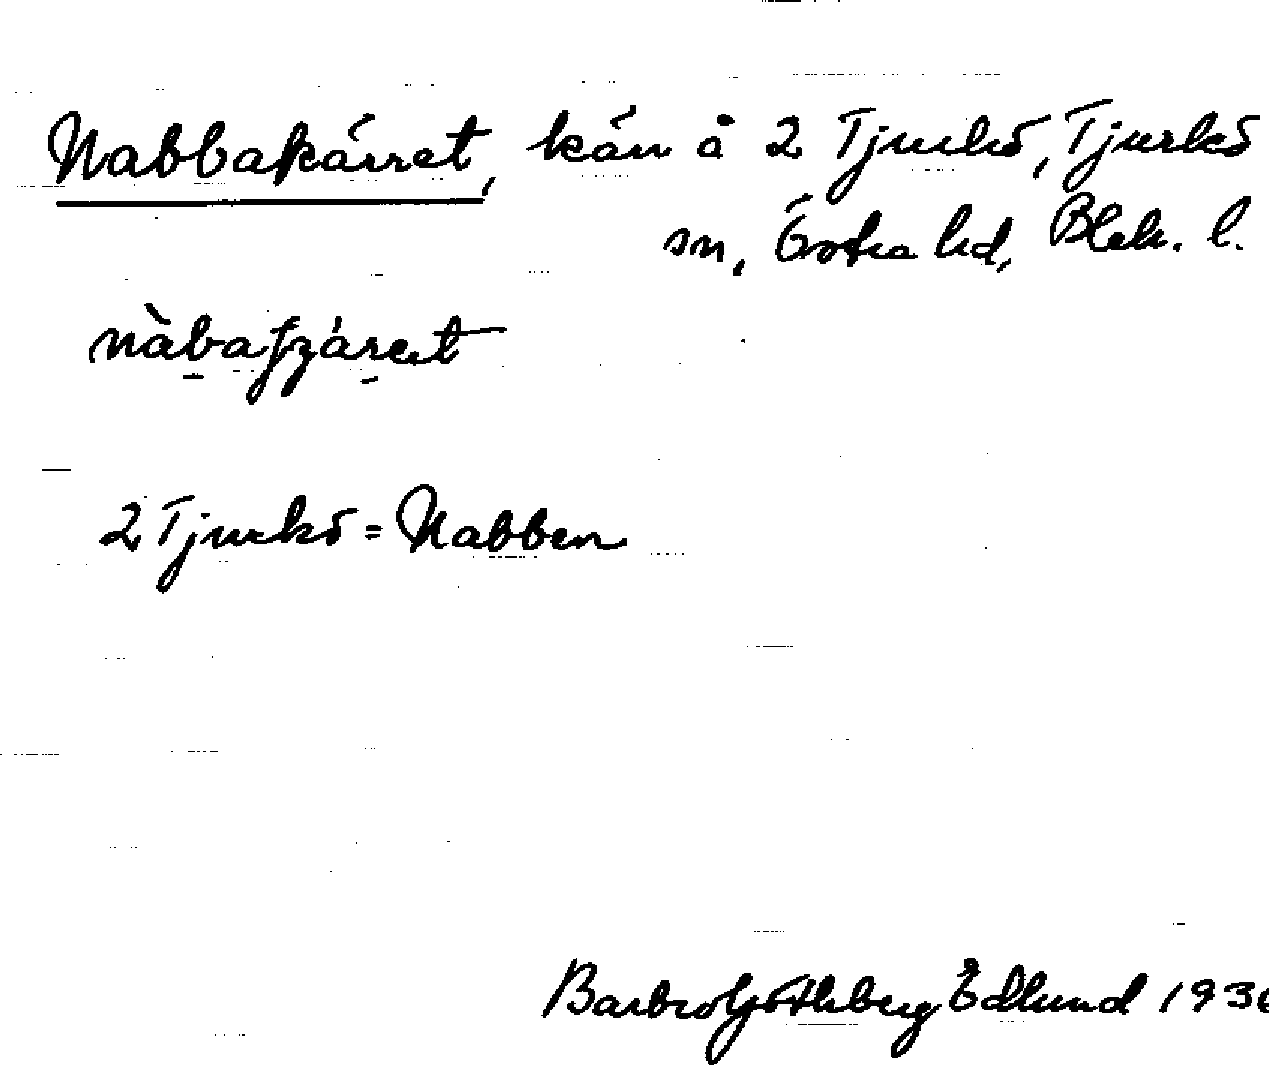 Nabbakärret, kärr å 2 Tjurkö, Tjurkö
sn, Östra hd, Blek. l.
2 Tjurkö = Nabben
Barbro Götlberg Edlund